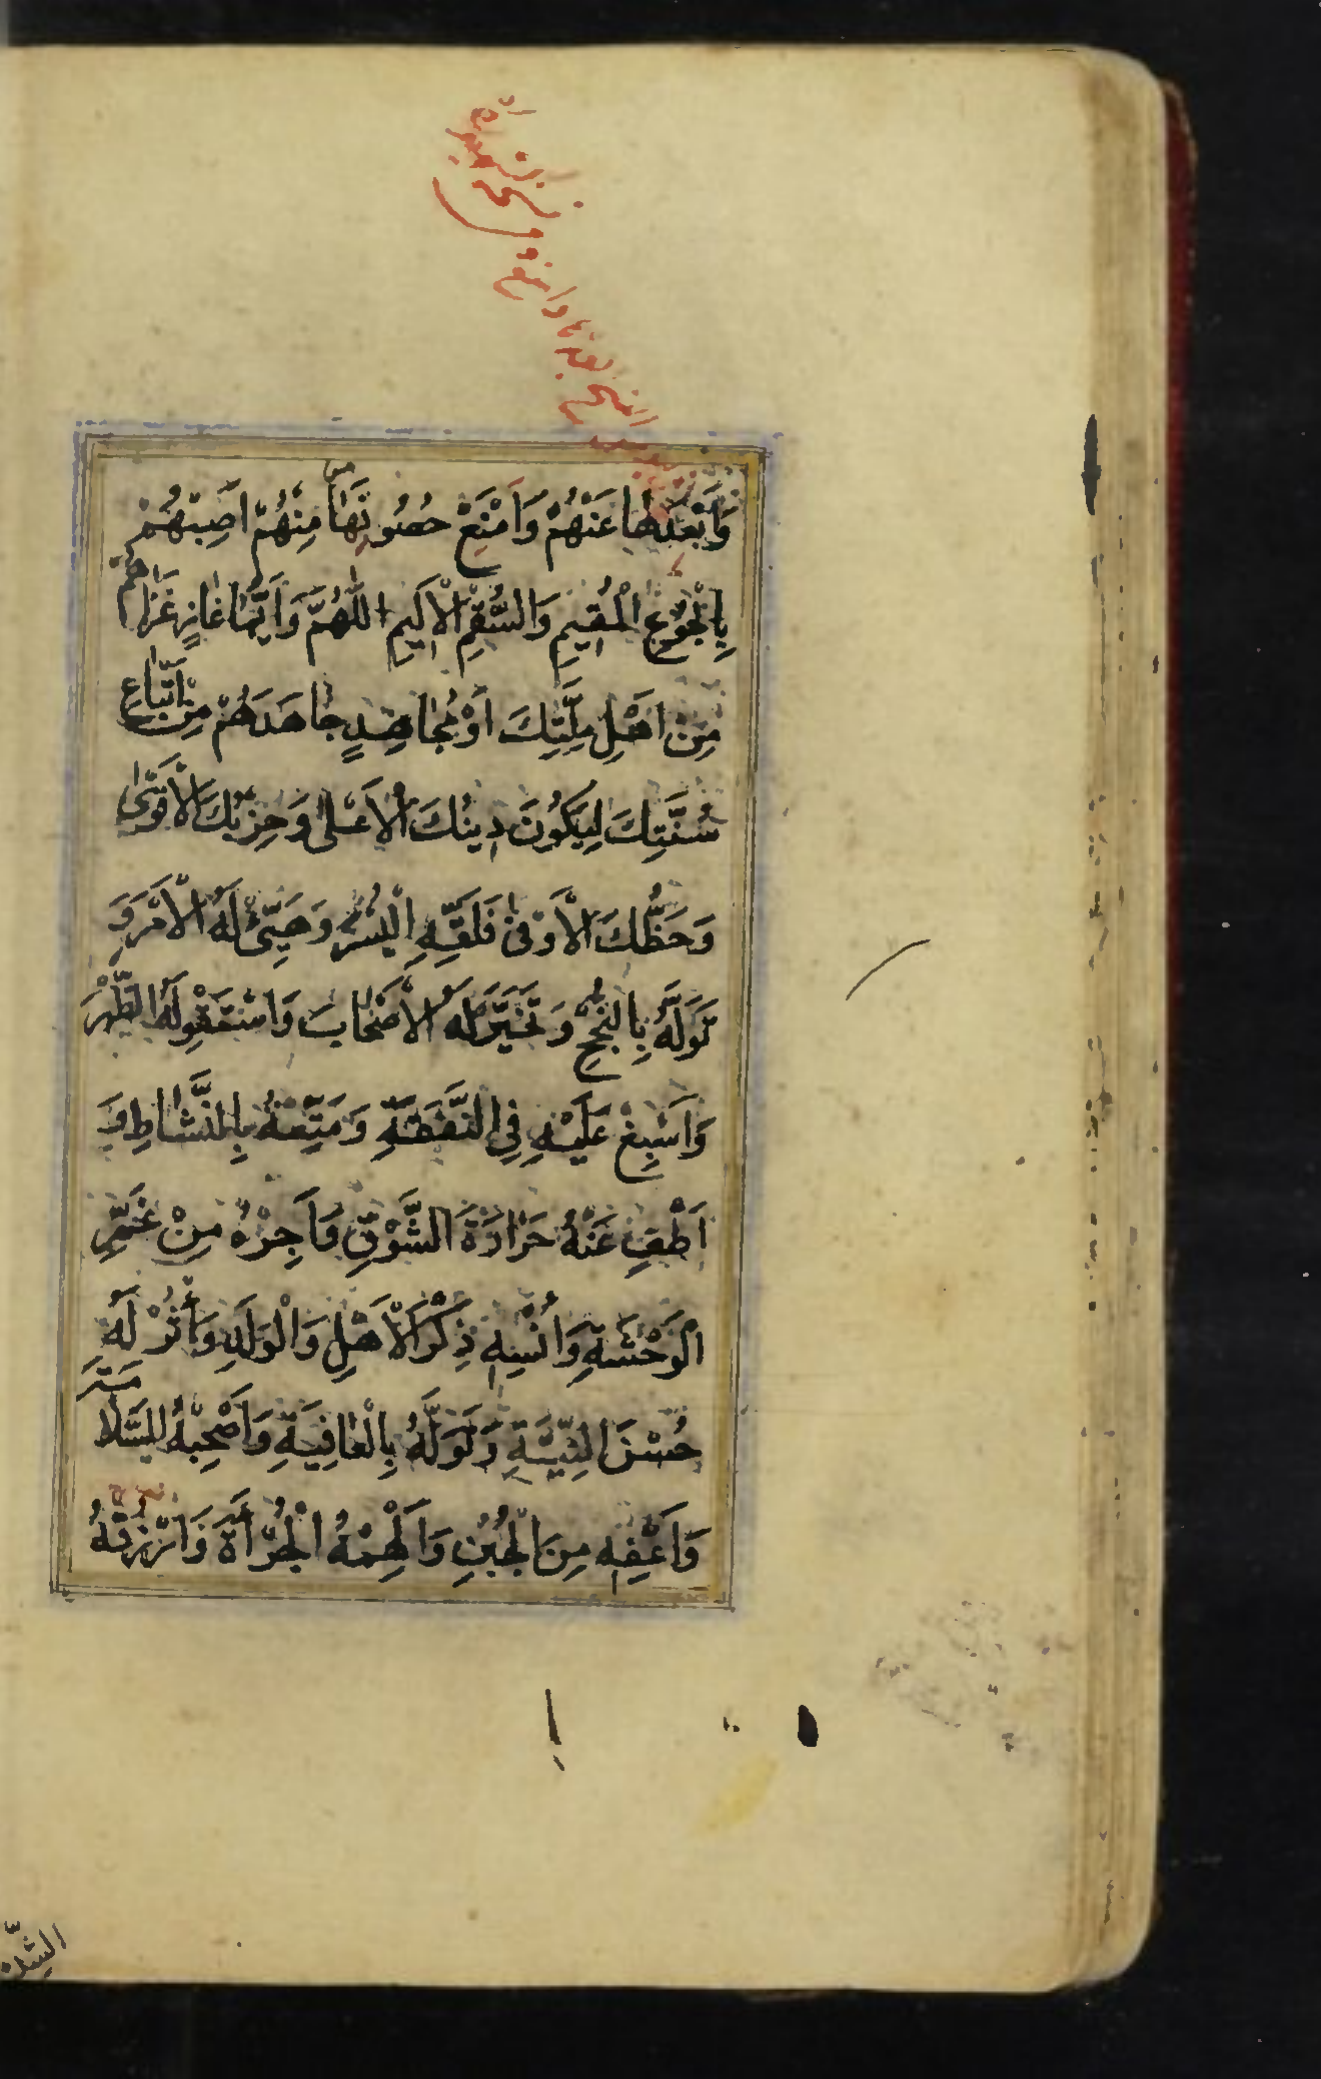 وَاَبْعَدَهَا عَنْهُمْ وَاَمْنَعْ حُصُونَهَا مِنْهُمْ اَصِبْهُمْ
بِالْجُوعِ الْمُقِيمِ وَالسُّقْمِ الْاَلِيمِ اللّٰهُمَّ وَاَيُّمَا غَازٍ غَزَاهُمْ
مِنْ اَهْلِ مِلَّتِكَ اَوْ مُجَاهِدٍ جَاهَدَهُمْ مِنْ اَتْبَاعِ
سُنَّتِكَ لِيَكُونَ دِينُكَ الْاَعْلٰى وَحِزْبُكَ الْاَقْوٰى
وَحَظُّكَ الْاَوْفٰى فَلَقِّهِ الْيُسْرَ وَهَيِّئْ لَهُ الْاَمْرَ وَ
تَوَلَّهُ بِالنُّجْحِ وَتَخَيَّرْ لَهُ الْاَصْحَابَ وَاسْتَقْوِ لَهُ الظَّهْرَ
وَاَسْبِغْ عَلَيْهِ فِي النَّفَقَةِ وَمَتِّعْهُ بِالنَّشَاطِ وَ
اَطْفِ عَنْهُ حَرَارَةَ الشَّوْقِ وَاَجِرْهُ مِنْ غَمِّ
الْوَحْشَةِ وَاَنْسِهِ ذِكْرَ الْاَهْلِ وَالْوَلَدِ وَأْثُرْ لَهُ
حُسْنَ النِّيَّةِ وَتَوَلَّهُ بِالْعَافِيَةِ وَاَصْحِبْهُ السَّلَامَةَ
وَاَعْفِهِ مِنَ الْجُبْنِ وَاَلْهِمْهُ الْجُرْأَةَ وَارْزُقْهُ